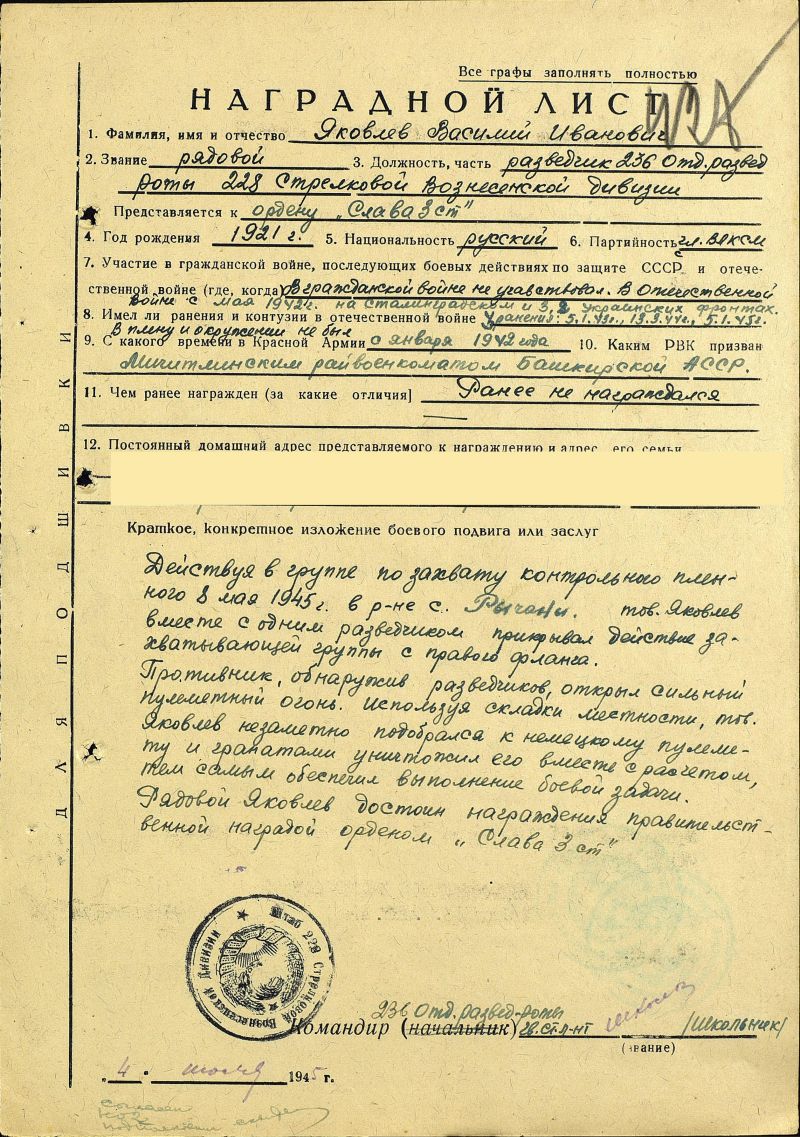 Все графы заполнять полностью
НАГРАДНОЙ ЛИСТ
1. Фамилия, имя и отчество Яковлев Василий Иванович
2. Звание рядовой 3. Должность, часть разведчик 236 отд. развед
роты 228 Стрелковой Вознесенской дивизии
Представляется к ордену „Слава 3 ст"
4. Год рождения 1921 г. 5. Национальность русский 6. Партийность чл. ВЛКСМ
7. Участие в гражданской войне, последующих боевых действиях по защите СССР и отече-
ственной войне (где, когда) В гражданской войне не участвовал. В Отечественной
войне с мая 1942 г. на Сталинградском и 3, 2 Украинских фронтах.
8. Имел ли ранения и контузии в отечественной войне 3 ранения: 5.1.43г., 13.3.44г., 5.1.45г.
В плену и окружении не был
9. С какого времени в Красной Армии с января 1942 года 10. Каким РВК призван
Мичитлинским райвоенкоматом Башкирской АССР.
11. Чем ранее награжден (за какие отличия) Ранее не награждался
12. Постоянный домашний адрес представляемого к награждению и адрес его семьи
Краткое, конкретное изложение боевого подвига или заслуг
Действуя в группе по захвату контрольного плен-
ного 8 мая 1945 г. в р-не с. Рычаны. тов. Яковлев
вместе с одним разведчиком прикрывал действие за-
хватывающей группы с правого фланга.
Противник, обнаружив разведчиков, открыл сильный
пулеметный огонь. Используя складки местности, тов.
Яковлев незаметно подобрался к немецкому пулеме-
ту и гранатами уничтожил его вместе с расчетом,
тем самым обеспечил выполнение боевой задачи.
Рядовой Яковлев достоин награждения правительст-
венной наградой орденом „Слава 3 ст"
Штаб 228 Стрелковой Вознесенской Дивизии
236 отд. развед-роты
Командир (начальник) гв. ст. л-нт /Школьник/
(звание)
„4" июля 1945 г.
ДЛЯ ПОДШИВКИ